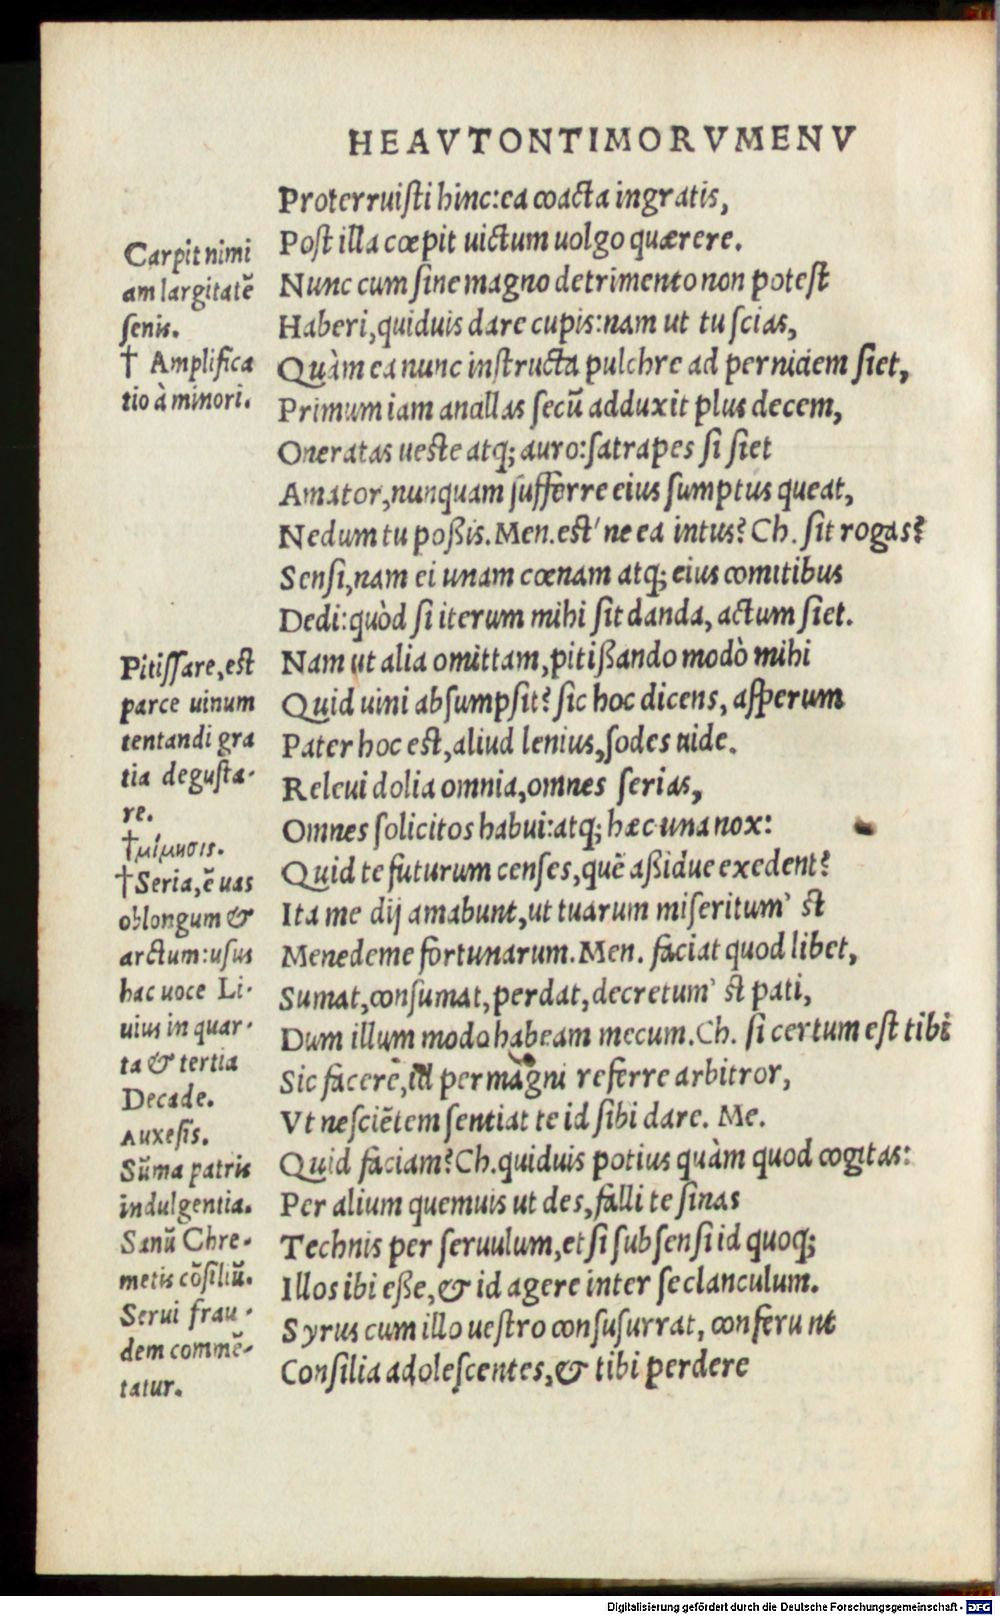 HEAVTONTIMORVMENV
Proterruisti hinc:ea coacta ingratis,
Post illa cœpit uictum uolgo quærere.
Nunc cum sine magno detrimento non potest
Haberi,quiduis dare cupis:nam ut tu scias,
Quàm ea nunc instructa pulchre ad perniciem siet,
Primum iam ancillas secũ adduxit plus decem,
Oneratas ueste atq; auro:satrapes si siet
Amator,nunquam sufferre eius sumptus queat,
Nedum tu poßis.Men.est' ne ea intus? Ch. sit rogas?
Sensi,nam ei unam cœnam atq; eius comitibus
Dedi:quòd si iterum mihi sit danda, actum siet.
Nam ut alia omittam,pitißando modò mihi
Quid uini absumpsit? sic hoc dicens, asperum
Pater hoc est,aliud lenius,sodes uide.
Releui dolia omnia,omnes serias,
Omnes solicitos habui:atq; hæc una nox:
Quid te futurum censes,quẽ aßidue exedent?
Ita me dij amabunt,ut tuarum miseritum' st
Menedeme fortunarum.Men. faciat quod libet,
Sumat,consumat,perdat,decretum' st pati,
Dum illum modo habeam mecum.Ch. si certum est tibi
Sic facere,id permagni referre arbitror,
Vt nesciẽtem sentiat te id sibi dare. Me.
Quid faciam?Ch.quiduis potius quàm quod cogitas:
Per alium quemuis ut des,falli te sinas
Technis per seruulum,et si subsensi id quoq;
Illos ibi eße,& id agere inter se clanculum.
Syrus cum illo uestro consusurrat, conferunt
Consilia adolescentes,& tibi perdere
Carpit nimi
am largitatẽ
senis.
† Amplifica
tio à minori.
Pitissare,est
parce uinum
tentandi gra
tia degusta-
re.
†μίμησις.
†Seria,ẽ uas
oblongum &
arctum:usus
hac uoce Li-
uius in quar-
ta & tertia
Decade.
Auxesis.
Sũma patris
indulgentia.
Sanũ Chre-
metis cõsiliũ.
Serui frau-
dem commẽ-
tatur.
Digitalisierung gefördert durch die Deutsche Forschungsgemeinschaft - DFG